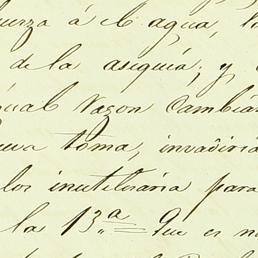 fuerza á el agua, la
de la asequiá; y
igual razon Cambiar
nueva toma, invadiria
los inutilisaria para
la 13.ª Que es